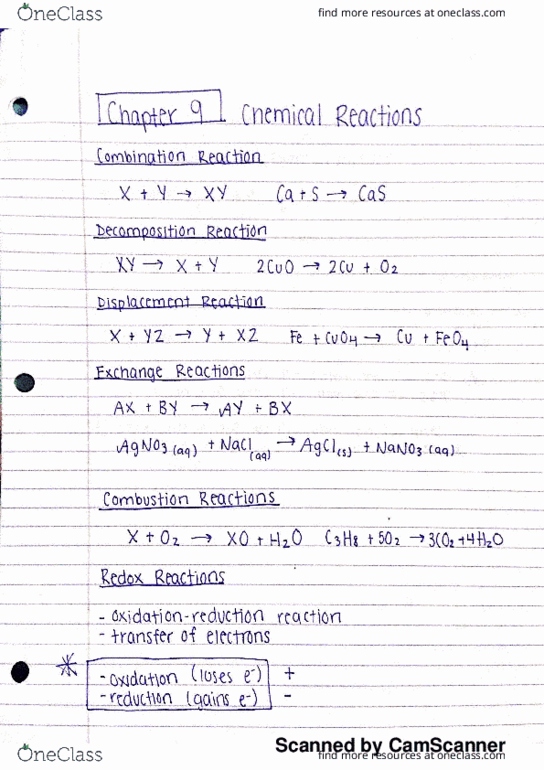 OneClass find more resources at oneclass.com
Chapter 9 Chemical Reactions
Combination Reaction
X + Y → XY Ca + S → CaS
Decomposition Reaction
XY → X + Y 2CuO → 2Cu + O₂
Displacement Reaction
X + YZ → Y + XZ Fe + CuO₄ → Cu + FeO₄
Exchange Reactions
AX + BY → AY + BX
AgNO₃ (aq) + NaCl (aq) → AgCl(s) + NaNO₃ (aq)
Combustion Reactions
X + O₂ → XO + H₂O C₃H₈ + 5O₂ → 3CO₂ + 4H₂O
Redox Reactions
- oxidation-reduction reaction
- transfer of electrons
* - oxidation (loses e⁻) +
- reduction (gains e⁻) -
Scanned by CamScanner
OneClass find more resources at oneclass.com